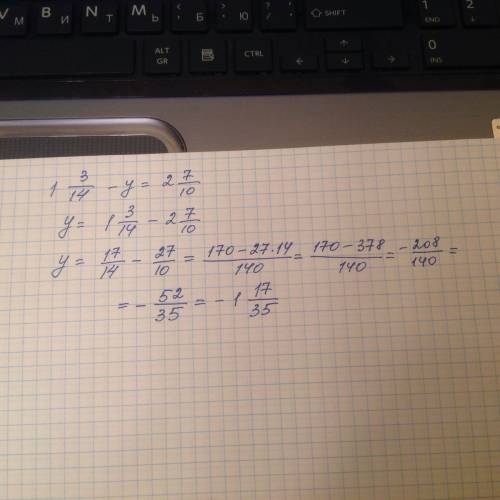 V м B и N т M ь < , Б > . Ю ? / ⇧ SHIFT 1 END 2 ↓
ALT GR CTRL ← ↑ ↓ → 0 INS
1 3/14 - y = 2 7/10
y = 1 3/14 - 2 7/10
y = 17/14 - 27/10 = (170-27·14)/140 = (170-378)/140 = -208/140 =
= - 52/35 = - 1 17/35